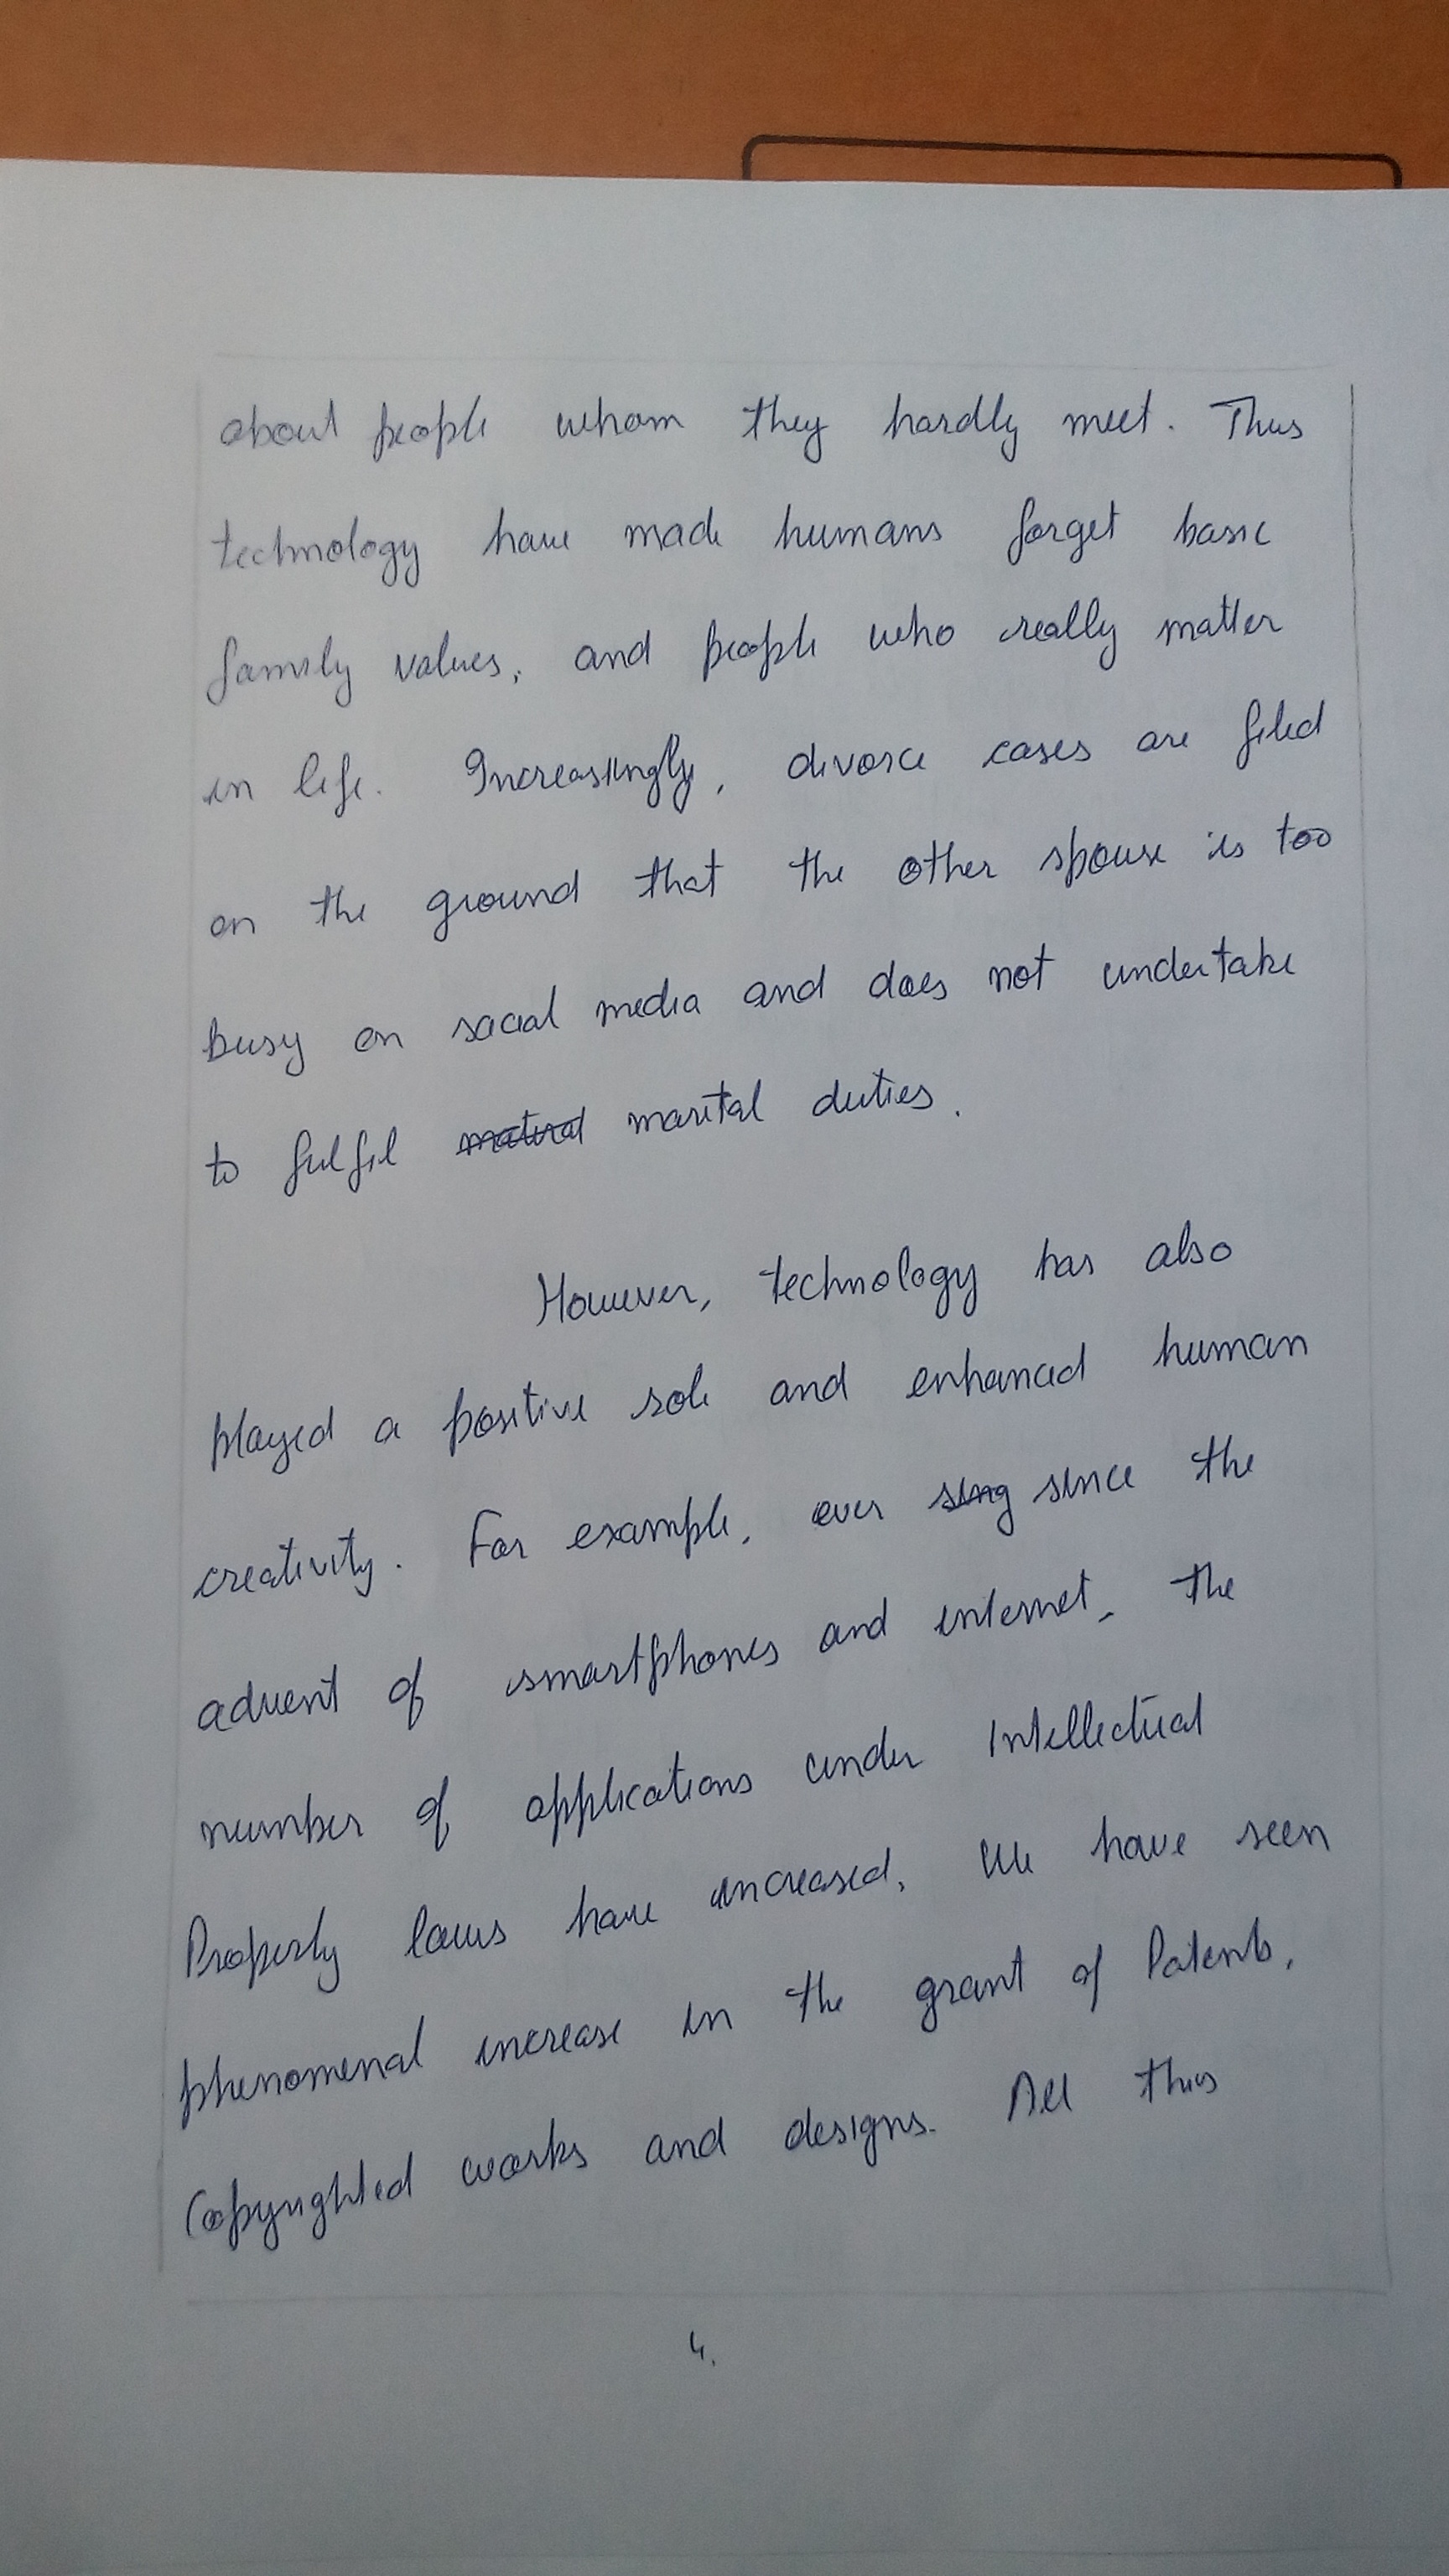 about people whom they hardly meet. Thus
technology have made humans forget basic
family values, and people who really matter
in life. Increasingly, divorce cases are filed
on the ground that the other spouse is too
busy on social media and does not undertake
to fulfil matiral marital duties.
However, technology has also
played a positive role and enhanced human
creativity. For example, ever sing since the
advent of smartphones and internet, the
number of applications under Intellectual
Property laws have increased. We have seen
phenomenal increase in the grant of Patents,
Copyrighted works and designs. All this
4.